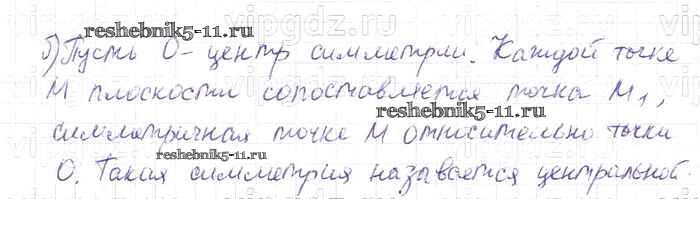 vipgdz.ru
reshebnik5-11.ru
б) Пусть O - центр симметрии. Каждой точке
M плоскости сопоставляется точка M₁,
reshebnik5-11.ru
симметричная точке M относительно точки
reshebnik5-11.ru
O. Такая симметрия называется центральной.